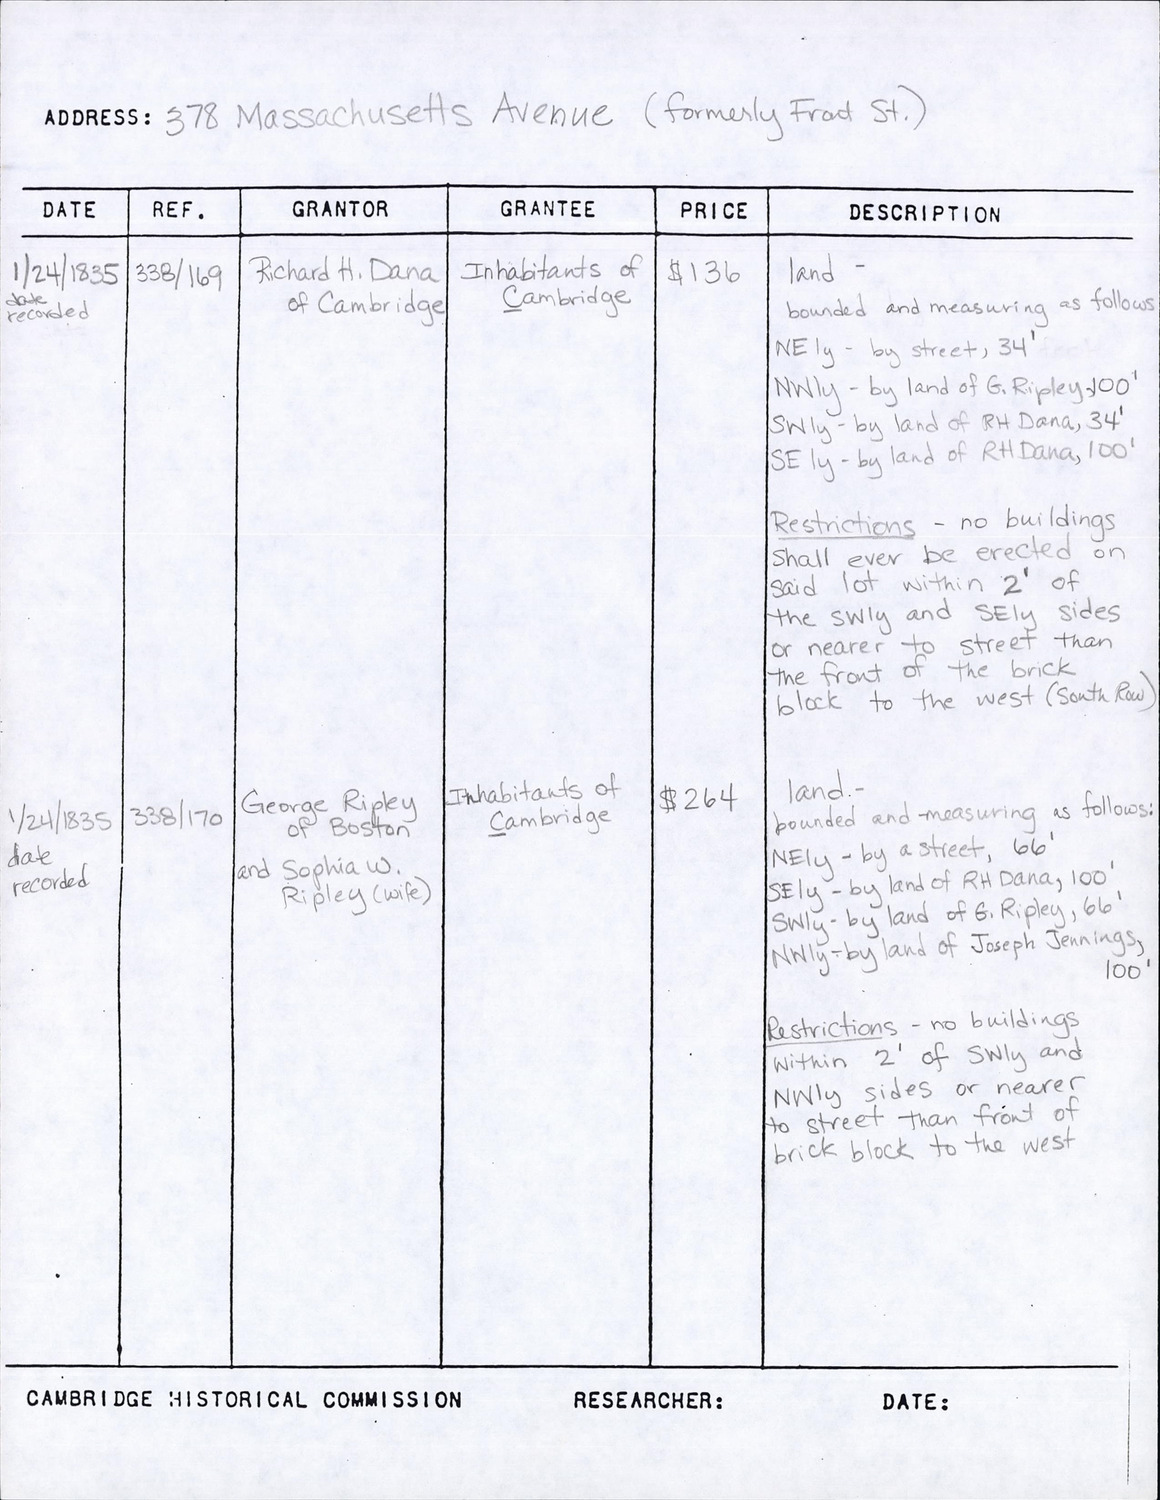 ADDRESS: 378 Massachusetts Avenue (formerly Front St.)
DATE REF. GRANTOR GRANTEE PRICE DESCRIPTION
1/24/1835 338/169 Richard H. Dana Inhabitants of $136 land -
date of Cambridge Cambridge bounded and measuring as follows
recorded
NEly - by street, 34'
NWly - by land of G. Ripley, 100'
SWly - by land of RH Dana, 34'
SEly - by land of RH Dana, 100'
Restrictions - no buildings
shall ever be erected on
said lot within 2' of
the SWly and SEly sides
or nearer to street than
the front of the brick
block to the west (South Row)
1/24/1835 338/170 George Ripley Inhabitants of $264 land -
date of Boston Cambridge bounded and measuring as follows:
recorded and Sophia W. NEly - by a street, 66'
Ripley (wife) SEly - by land of RH Dana, 100'
SWly - by land of G. Ripley, 66'
NWly - by land of Joseph Jennings,
100'
Restrictions - no buildings
within 2' of SWly and
NWly sides or nearer
to street than front of
brick block to the west
CAMBRIDGE HISTORICAL COMMISSION RESEARCHER: DATE: